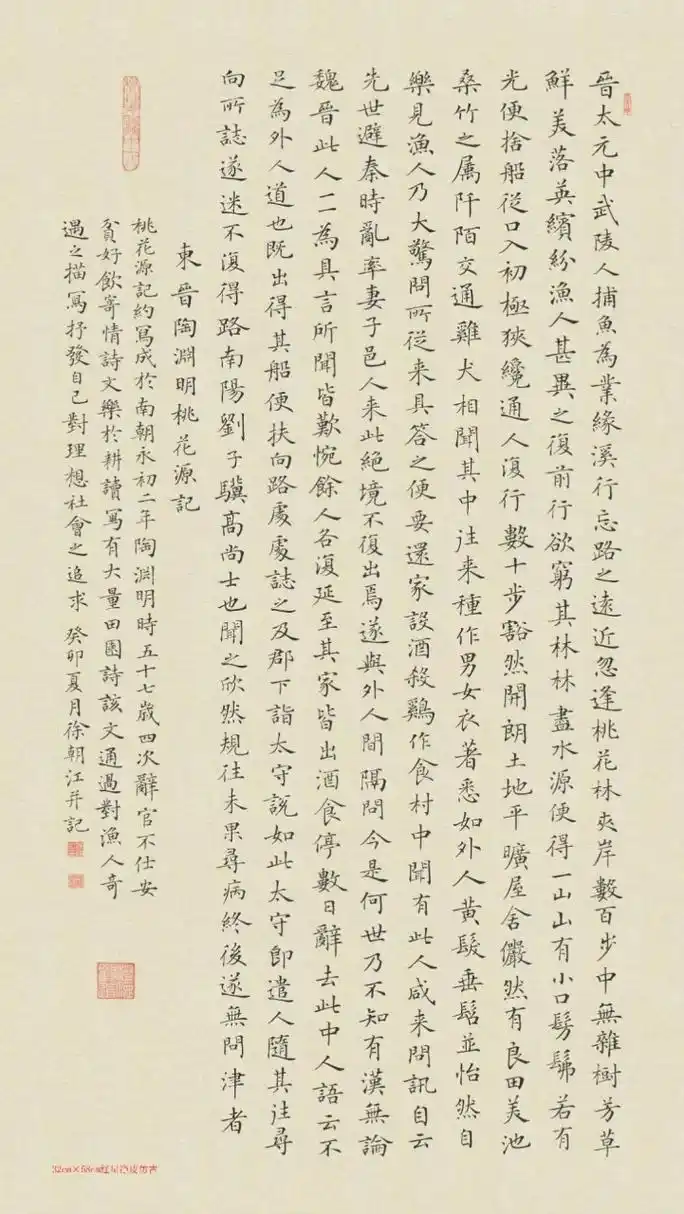 晉太元中武陵人捕魚為業緣溪行忘路之遠近忽逢桃花林夾岸數百步中無雜樹芳草
鮮美落英繽紛漁人甚異之復前行欲窮其林林盡水源便得一山山有小口髣髴若有
光便捨船從口入初極狹纔通人復行數十步豁然開朗土地平曠屋舍儼然有良田美池
桑竹之屬阡陌交通雞犬相聞其中往来種作男女衣著悉如外人黃髮垂髫並怡然自
樂見漁人乃大驚問所從来具答之便要還家設酒殺鷄作食村中聞有此人咸来問訊自云
先世避秦時亂率妻子邑人来此絕境不復出焉遂與外人間隔問今是何世乃不知有漢無論
魏晉此人一一為具言所聞皆歎惋餘人各復延至其家皆出酒食停數日辭去此中人語云不
足為外人道也既出得其船便扶向路處處誌之及郡下詣太守說如此太守即遣人隨其往尋
向所誌遂迷不復得路南陽劉子驥高尚士也聞之欣然規往未果尋病終後遂無問津者
東晉陶淵明桃花源記
桃花源記約寫成於南朝永初二年陶淵明時五十七歲四次辭官不仕安
貧好飲寄情詩文樂於耕讀寫有大量田園詩該文通過對漁人奇
遇之描寫抒發自己對理想社會之追求 癸卯夏月徐朝江并記